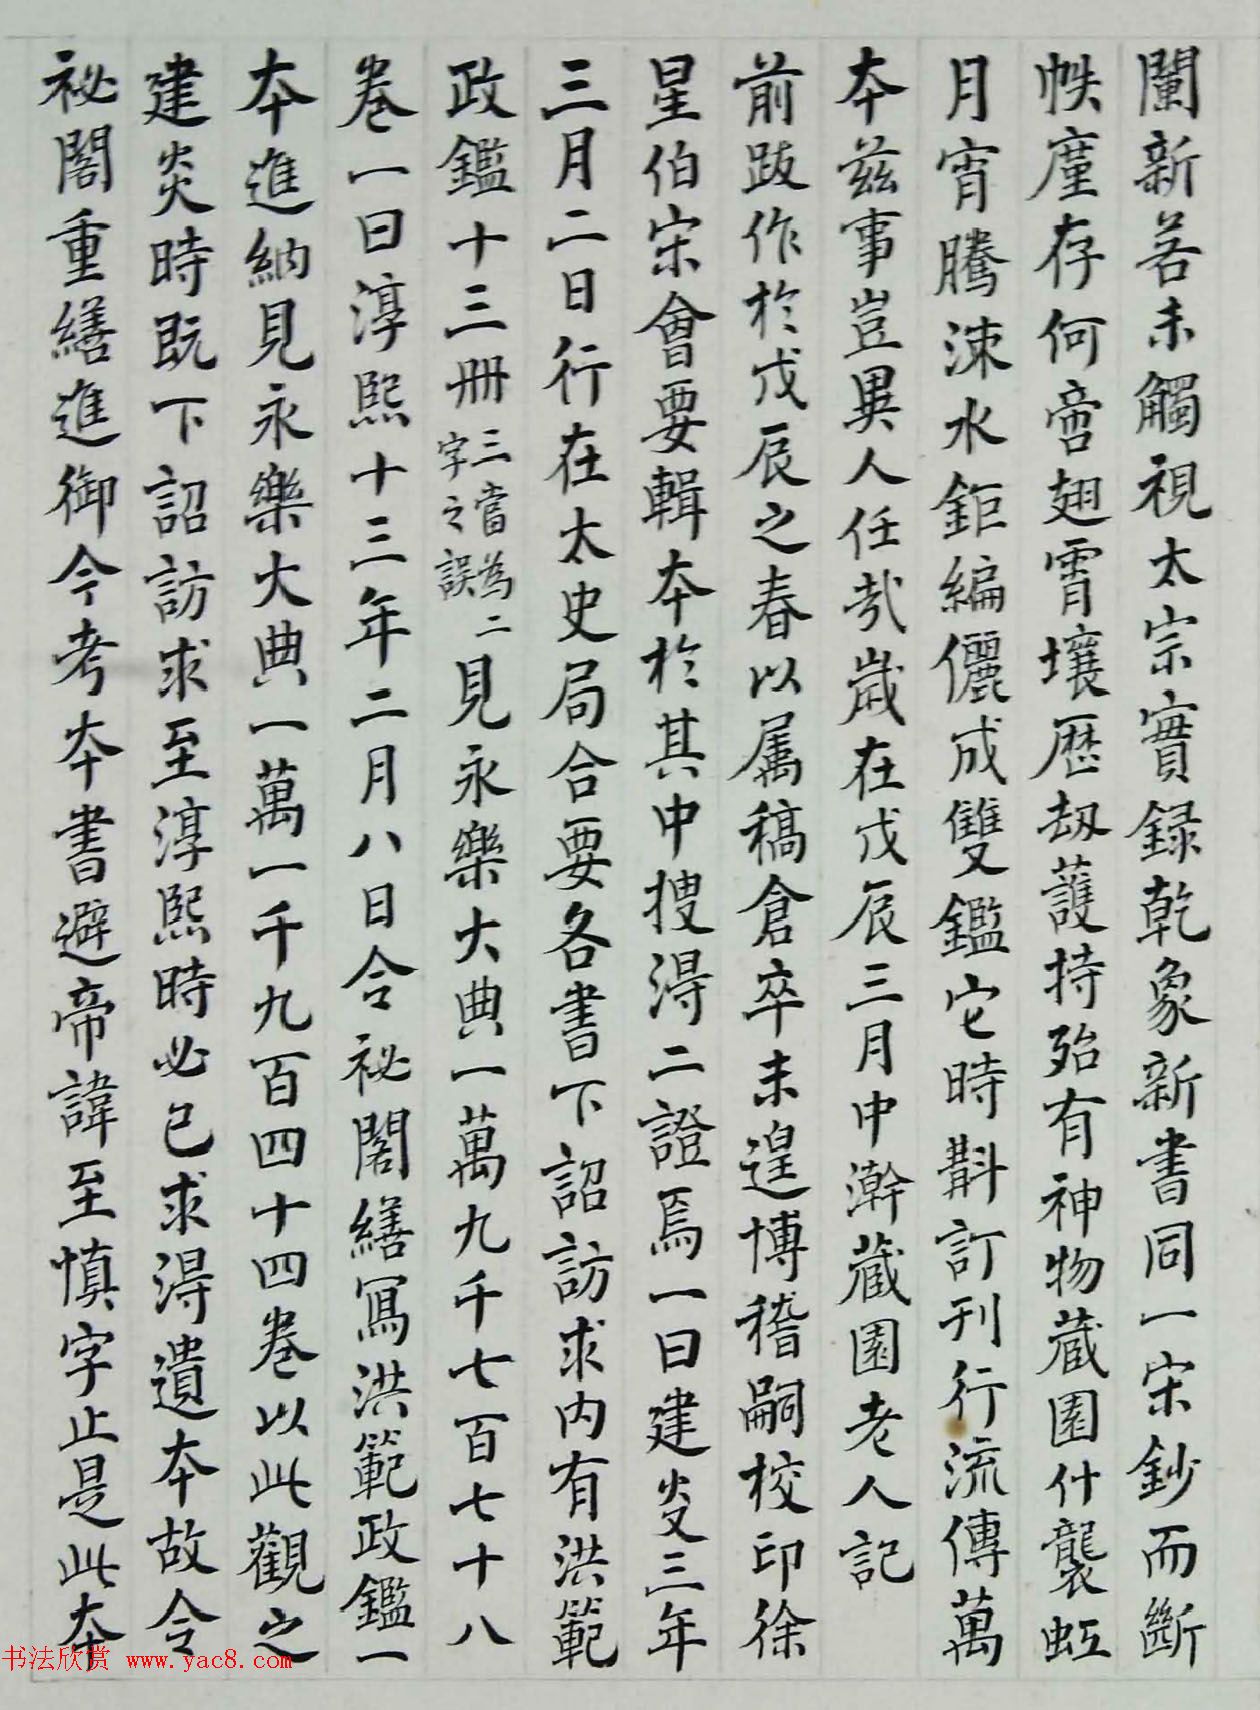 闌新若未觸視太宗實録乾象新書同一宋鈔而斷
帙廑存何啻翅霄壤歷刼護持殆有神物藏園什襲虹
月宵騰涑水鉅編儷成雙鑑它時斠訂刊行流傳萬
本兹事豈異人任哉歲在戊辰三月中澣藏園老人記
前跋作於戊辰之春以属稿倉卒未遑博稽嗣校印徐
星伯宋會要輯本於其中搜得二證焉一曰建炎三年
三月二日行在太史局合要各書下詔訪求内有洪範
政鑑十三冊三當為二字之誤見永樂大典一萬九千七百七十八
卷一曰淳熙十三年二月八日令祕閣繕寫洪範政鑑一
本進納見永樂大典一萬一千九百四十四卷以此觀之
建炎時既下詔訪求至淳熙時必已求得遺本故令
祕閣重繕進御今考本書避帝諱至慎字止是此本
书法欣赏 www.yac8.com